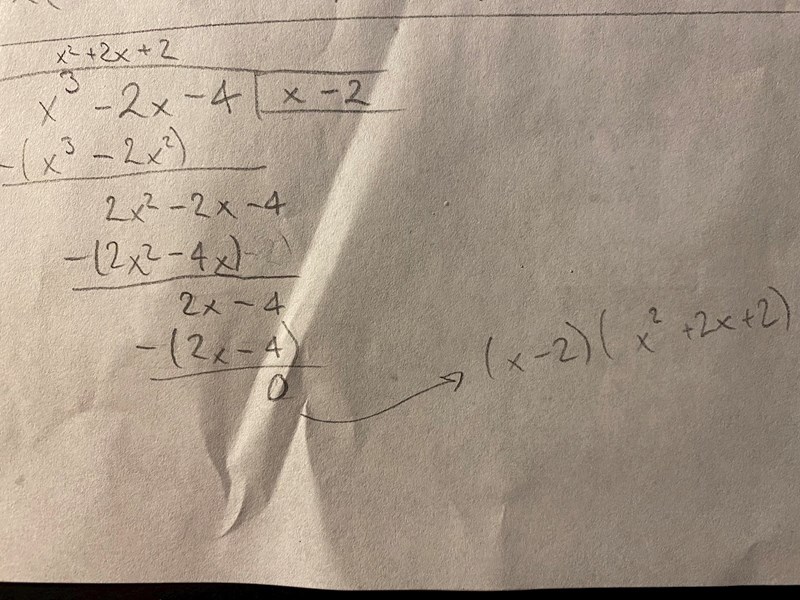 x² + 2x + 2
x³ - 2x - 4 | x - 2
-(x³ - 2x²)
2x² - 2x - 4
-(2x² - 4x)
2x - 4
-(2x - 4)
0 → (x - 2)(x² + 2x + 2)